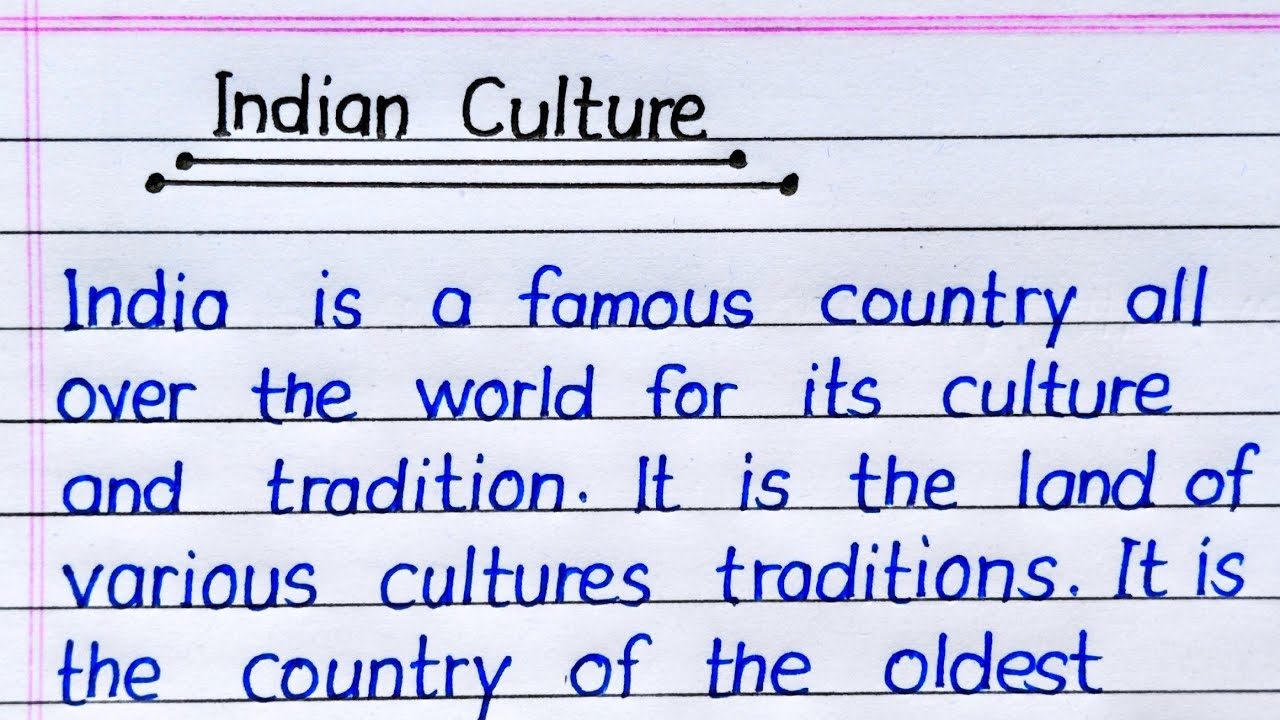 Indian Culture
India is a famous country all
over the world for its culture
and tradition. It is the land of
various cultures traditions. It is
the country of the oldest